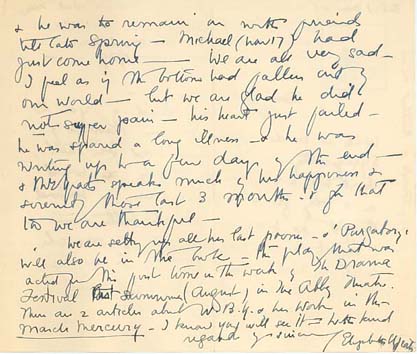 & he was to remain on with friends
till late Spring — Michael (now 17) had
just come home — We are all very sad —
I feel as if the bottom had fallen out of
our world — but we are glad he did
not suffer pain — his heart just failed —
he was spared a long illness — & he was
writing up to a few days of the end —
& Mrs Yeats speaks much of his happiness &
serenity those last 3 months — & for that
too we are thankful —
We are setting up all his last poems — & 'Purgatory'
will also be in the book — the play that was
acted for the first time in the week of the Drama
Festival last summer (August) in the Abbey Theatre.
There are 2 articles about W.B.Y. & his work in the
March Mercury — I know you will see it — with kind
regard yours sincerely Elizabeth C Yeats